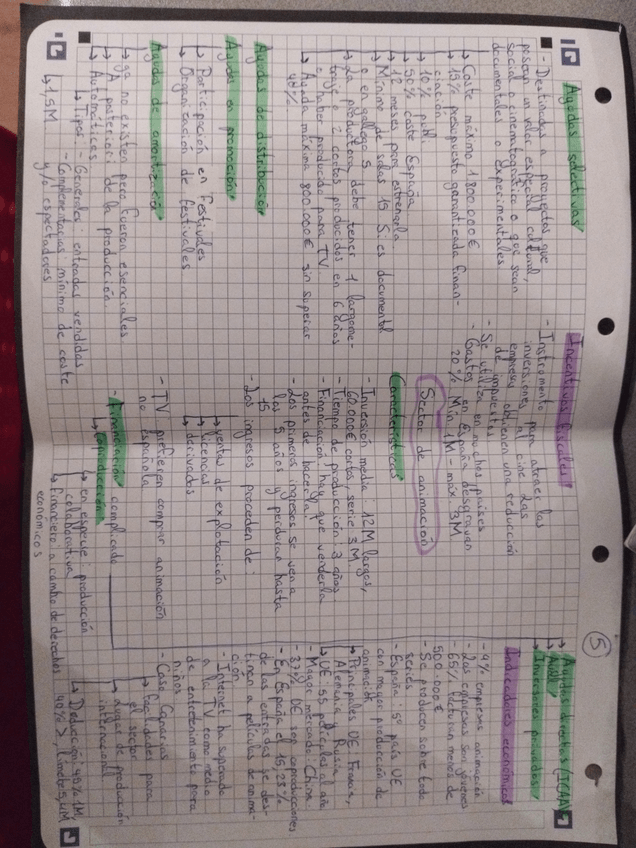 5
Ayudas selectivas
- Destinadas a proyectos que
posean un valor especial cultural,
social o cinematográfico o que sean
documentales o experimentales
↳ Coste máximo 1 800 000€
↳ 15% presupuesto garantizada finan-
ciación
↳ 10% publi
↳ 50% coste España
↳ 12 meses para estrenarla
↳ Mínimo de salas 15. Si es documental
o en gallego 5
↳ La productora debe tener 1 largome-
traje o 2 cortos producidos en 6 años
o haber producido para TV
↳ Ayuda máxima 800.000€ sin superar
40%
Ayudas de distribución
Ayudas en promoción
↳ Participación en Festivales
↳ Organización de festivales
Ayudas de amortización
↳ ya no existen pero fueron esenciales
↳ A posteriori de la producción.
↳ Automáticas
↳ Tipos: - General: entradas vendidas
- Complementarias: mínimo de coste
y/o espectadores
↳ 1,5M
Incentivos fiscales
- Instrumento para atraer las
inversiones al cine. Las
empresas obtienen una reducción
de impuestos
- Se utiliza en muchos países
- Gastos en España desgravan
20%. Mín 1M - máx 3M
Sector de animación
Características
- Inversión media 12M largos,
60.000€ cortos, serie 3M
- Tiempo de producción 3 años
- Financiación: hay que venderla
antes de hacerla
- Los primeros ingresos se ven a
los 5 años y perduran hasta
15
- Los ingresos proceden de:
↳ ventas de explotación
↳ licencias
↳ derivados
- TV prefieren comprar animación
no española
- Financiación complicada
↳ Coproducción
↳ en especie: producción
colaborativa
↳ Financiero a cambio de derechos
económicos
↳ Ayudas directas (ICAA)
↳ Inversores privados
Indicadores económicos
- 4% empresas animación
- Las empresas son jóvenes
- 65% facturan menos de
500.000€
- Se producen sobre todo
series
- España: 5º país UE
con mayor producción de
animación
↳ Principales UE: Francia,
Alemania, Rusia
↳ UE: 55 películas al año
- Mayor mercado: China
- 37% UE son coproducciones
- En España el
de las entradas se des-
tinan a películas de anima-
ción
- Internet ha superado
a la TV como medio
de entretenimiento para
niños
- Caso Canarias
↳ Facilidades para
el sector
↳ Lugar de producción
internacional
↳ Deducción